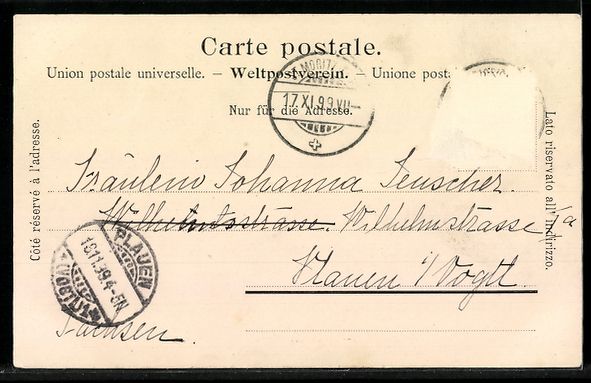 Carte postale.
Union postale universelle. – Weltpostverein. – Unione post
Nur für die Adresse.
Côté réservé à l'adresse.
Lato riservato all' indirizzo.
ST. MORITZ
17.XI.99.VII–
Fräulein Johanna Teuscher.
Wilhelmstrasse. Wilhelmstrasse
Plauen i/Vogtl.
Sachsen.
PLAUEN
18.11.99.4-5N
(VOGTL.)